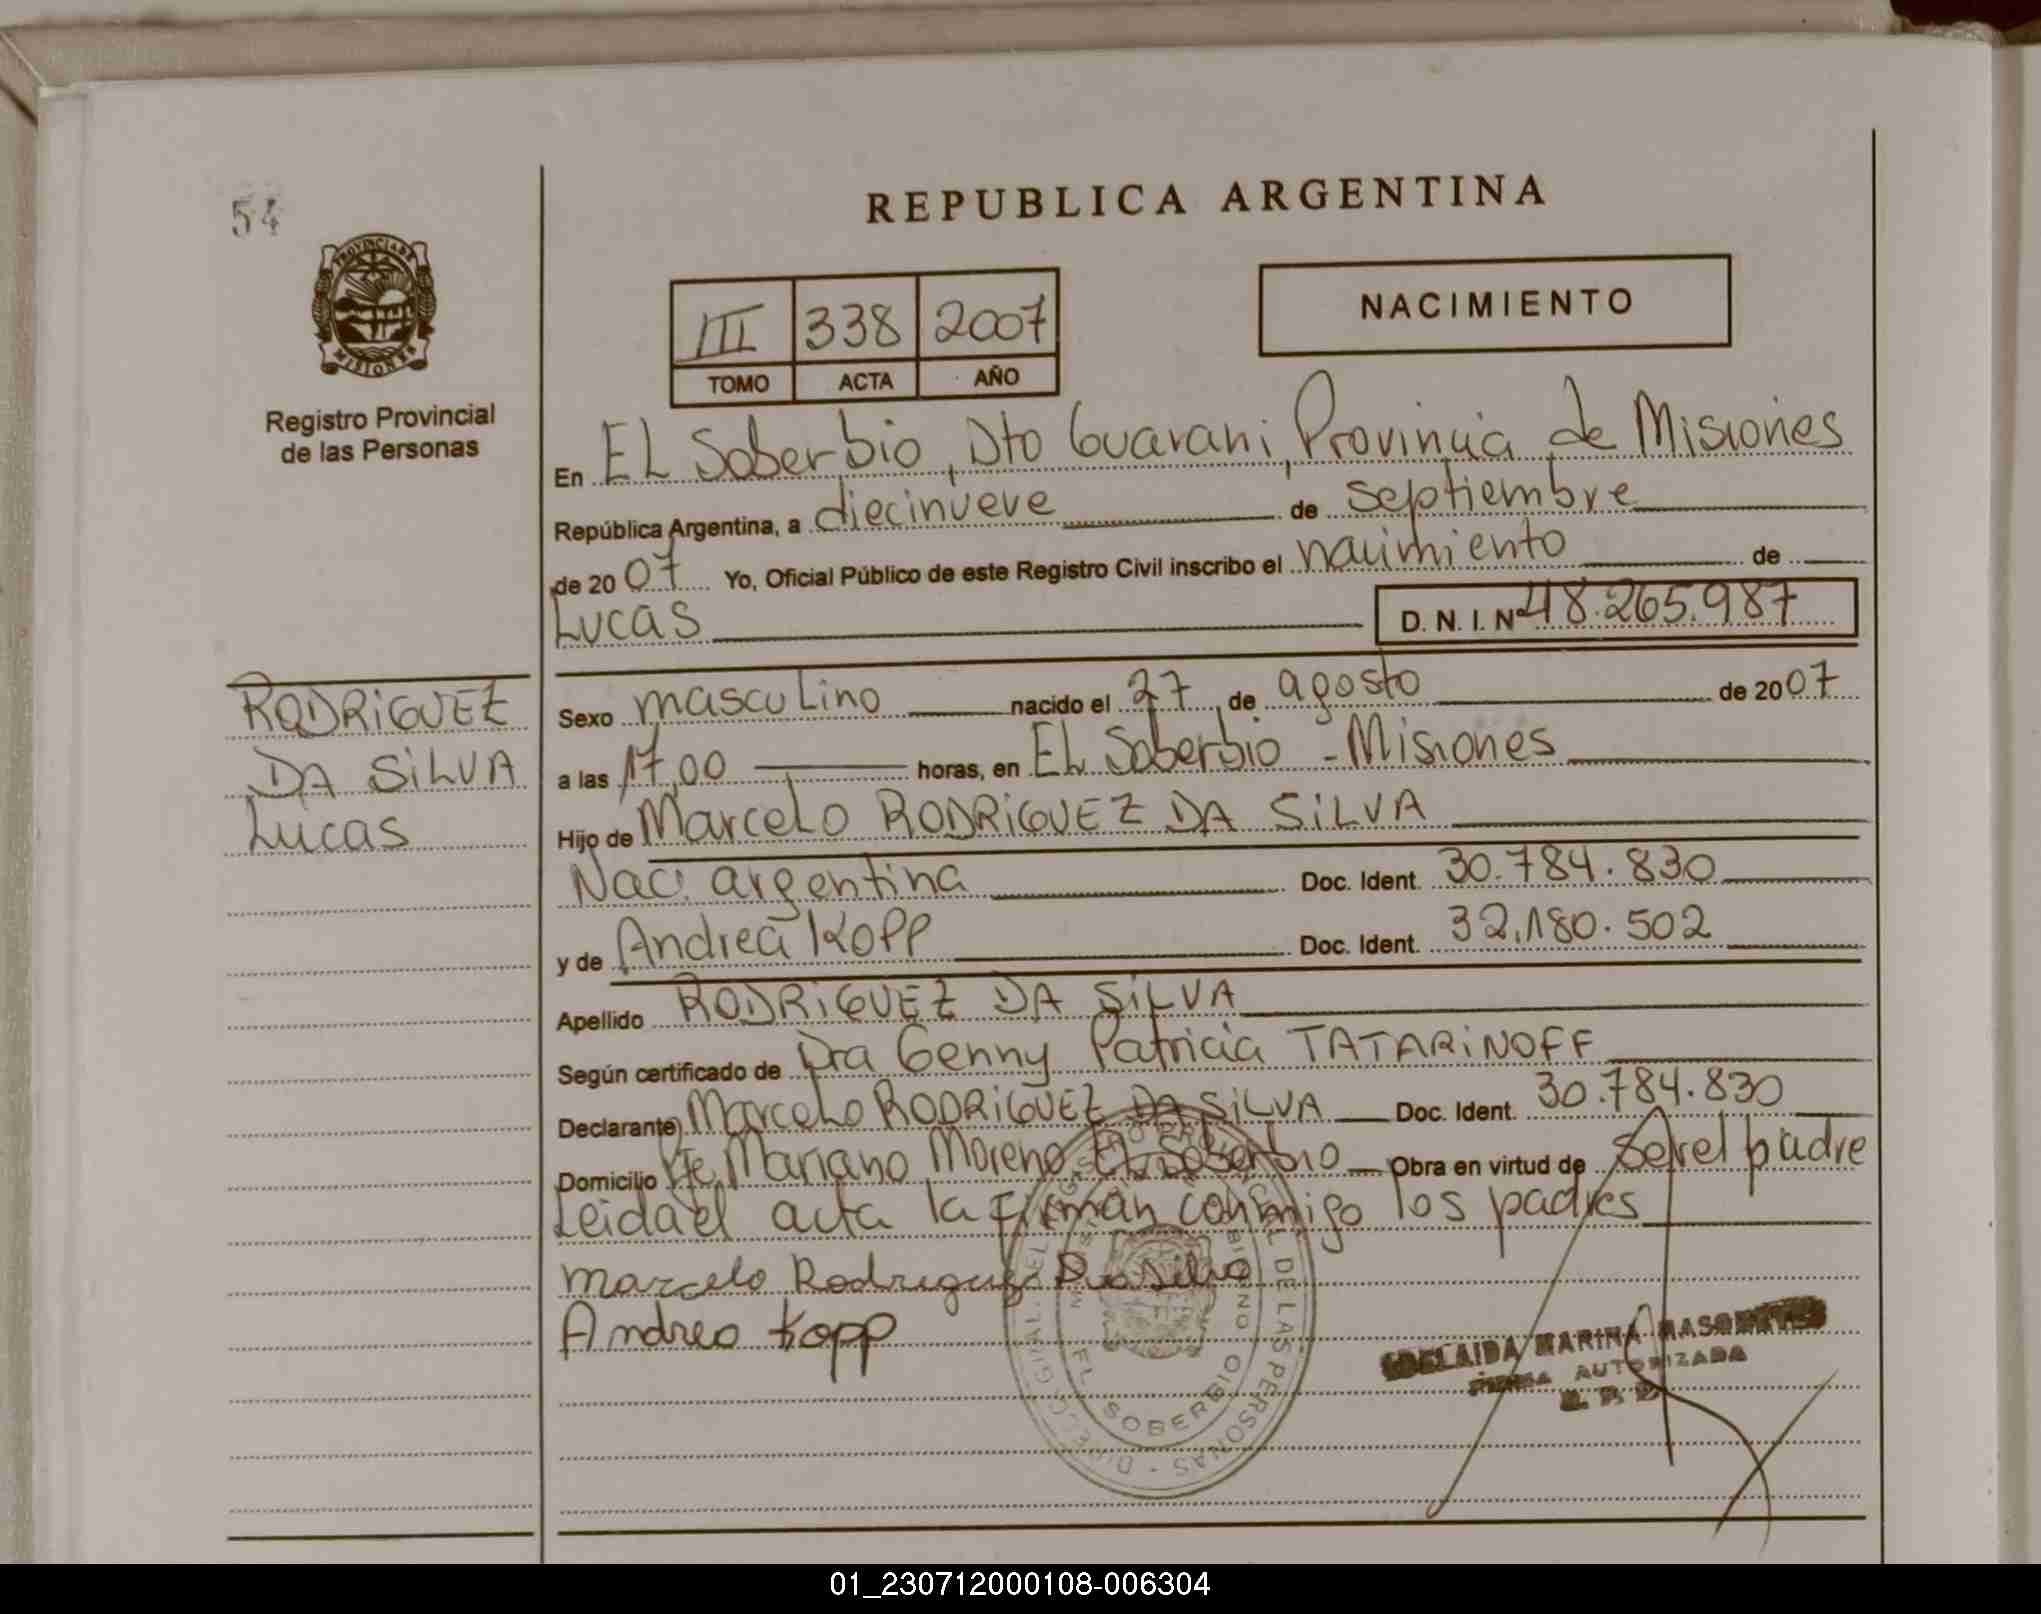 54
PROVINCIA DE
MISIONES
Registro Provincial
de las Personas
REPUBLICA ARGENTINA
III 338 2007
TOMO ACTA AÑO
NACIMIENTO
En EL Soberbio, Dto Guarani, Provincia de Misiones
República Argentina, a diecinueve de septiembre
de 2007 Yo, Oficial Público de este Registro Civil inscribo el nacimiento de
Lucas D. N. I. Nº 48.265.987
RODRIGUEZ
DA SILVA
Lucas
Sexo masculino nacido el 27 de agosto de 2007
a las 17,00 horas, en EL Soberbio - Misiones
Hijo de Marcelo RODRIGUEZ DA SILVA
Nac. argentina Doc. Ident. 30.784.830
y de Andrea KOPP Doc. Ident. 32.180.502
Apellido RODRIGUEZ DA SILVA
Según certificado de Dra Genny Patricia TATARINOFF
Declarante Marcelo RODRIGUEZ DA SILVA Doc. Ident. 30.784.830
Domicilio Mariano Moreno EL Soberbio Obra en virtud de ser el padre
Leida el acta la firman conmigo los padres
Marcelo Rodriguez Da Silva
Andrea Kopp
DE LAS PERSONAS
EL SOBERBIO
ADELAIDA MARINA
FIRMA AUTORIZADA
01_230712000108-006304